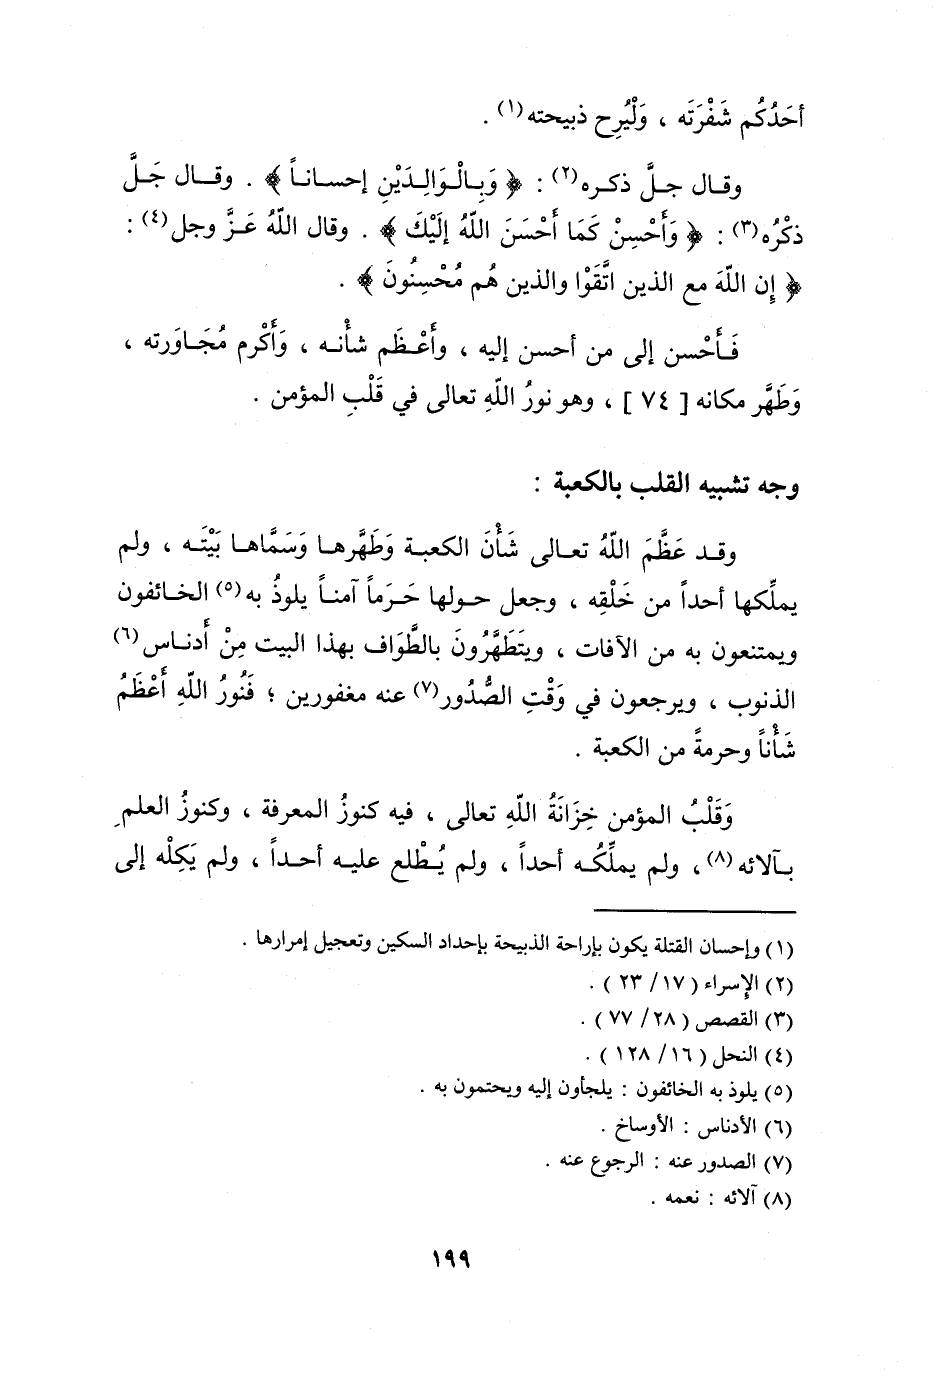 أحَدُكُم شَفْرَتَه ، وَلْيُرِح ذبيحته(١) .
وقال جلَّ ذكره(٢) : ﴿ وَبِالْوَالِدَيْنِ إحساناً ﴾ . وقال جَلَّ
ذكْرُه(٣) : ﴿ وَأَحْسِنْ كَمَا أَحْسَنَ اللهُ إلَيْكَ ﴾ . وقال اللهُ عَزَّ وجل(٤) :
﴿ إِن اللهَ مع الذين اتَّقَوْا والذين هُم مُحْسِنُونَ ﴾ .
فَأَحْسن إلى من أحسن إليه ، وأَعْظَم شأْنه ، وَأَكْرم مُجَاوَرته ،
وَطَهَّر مكانه [ ٧٤ ] ، وهو نورُ اللهِ تعالى في قَلْبِ المؤمن .
وجه تشبيه القلب بالكعبة :
وقد عَظَّمَ اللهُ تعالى شَأْنَ الكعبة وَطَهَّرها وَسَمَّاها بَيْتَه ، ولم
يملِّكها أحداً من خَلْقِه ، وجعل حولها حَرَماً آمناً يلوذُ به(٥) الخائفون
ويمتنعون به من الآفات ، ويتَطَهَّرُونَ بالطَّوَاف بهذا البيت مِنْ أَدناس(٦)
الذنوب ، ويرجعون في وَقْتِ الصُّدُور(٧) عنه مغفورين ؛ فَنُورُ اللهِ أَعْظَمُ
شَأْناً وحرمةً من الكعبة .
وَقَلْبُ المؤمن خِزَانَةُ اللهِ تعالى ، فيه كنوزُ المعرفة ، وكنوزُ العلمِ
بآلائه(٨) ، ولم يملِّكه أحداً ، ولم يُطْلع عليه أحداً ، ولم يَكِلْه إلى
(١) وإحسان القتلة يكون بإراحة الذبيحة بإحداد السكين وتعجيل إمرارها .
(٢) الإسراء ( ١٧/ ٢٣ ) .
(٣) القصص ( ٢٨/ ٧٧ ) .
(٤) النحل ( ١٦/ ١٢٨ ) .
(٥) يلوذ به الخائفون : يلجأون إليه ويحتمون به .
(٦) الأدناس : الأوساخ .
(٧) الصدور عنه : الرجوع عنه .
(٨) آلائه : نعمه .
١٩٩